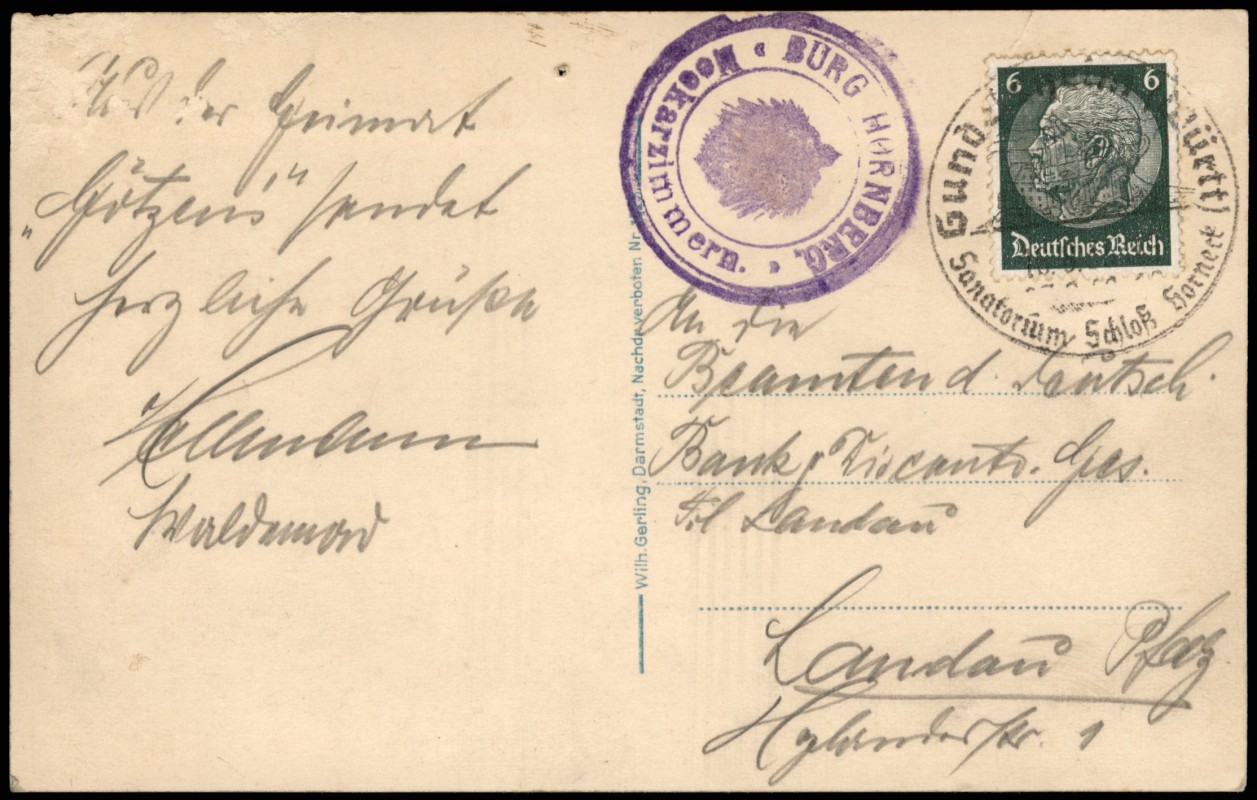 Aus der Heimat
„Götzens" sendet
herzliche Grüße
Waldemar
BURG HORNBERG.
Neckarzimmern.
6 6
Deutsches Reich
Gundelsheim (Württ)
Sanatorium Schloß Horneck
Wilh. Gerling, Darmstadt, Nachdr. verboten Nr.
An die
Beamten d. Deutsch.
Bank & Disconto. Ges.
Fil Landau
Landau Pfalz
Xylanderstr. 1